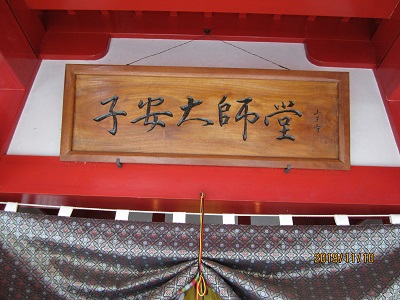 子安大師堂
2019/11/10